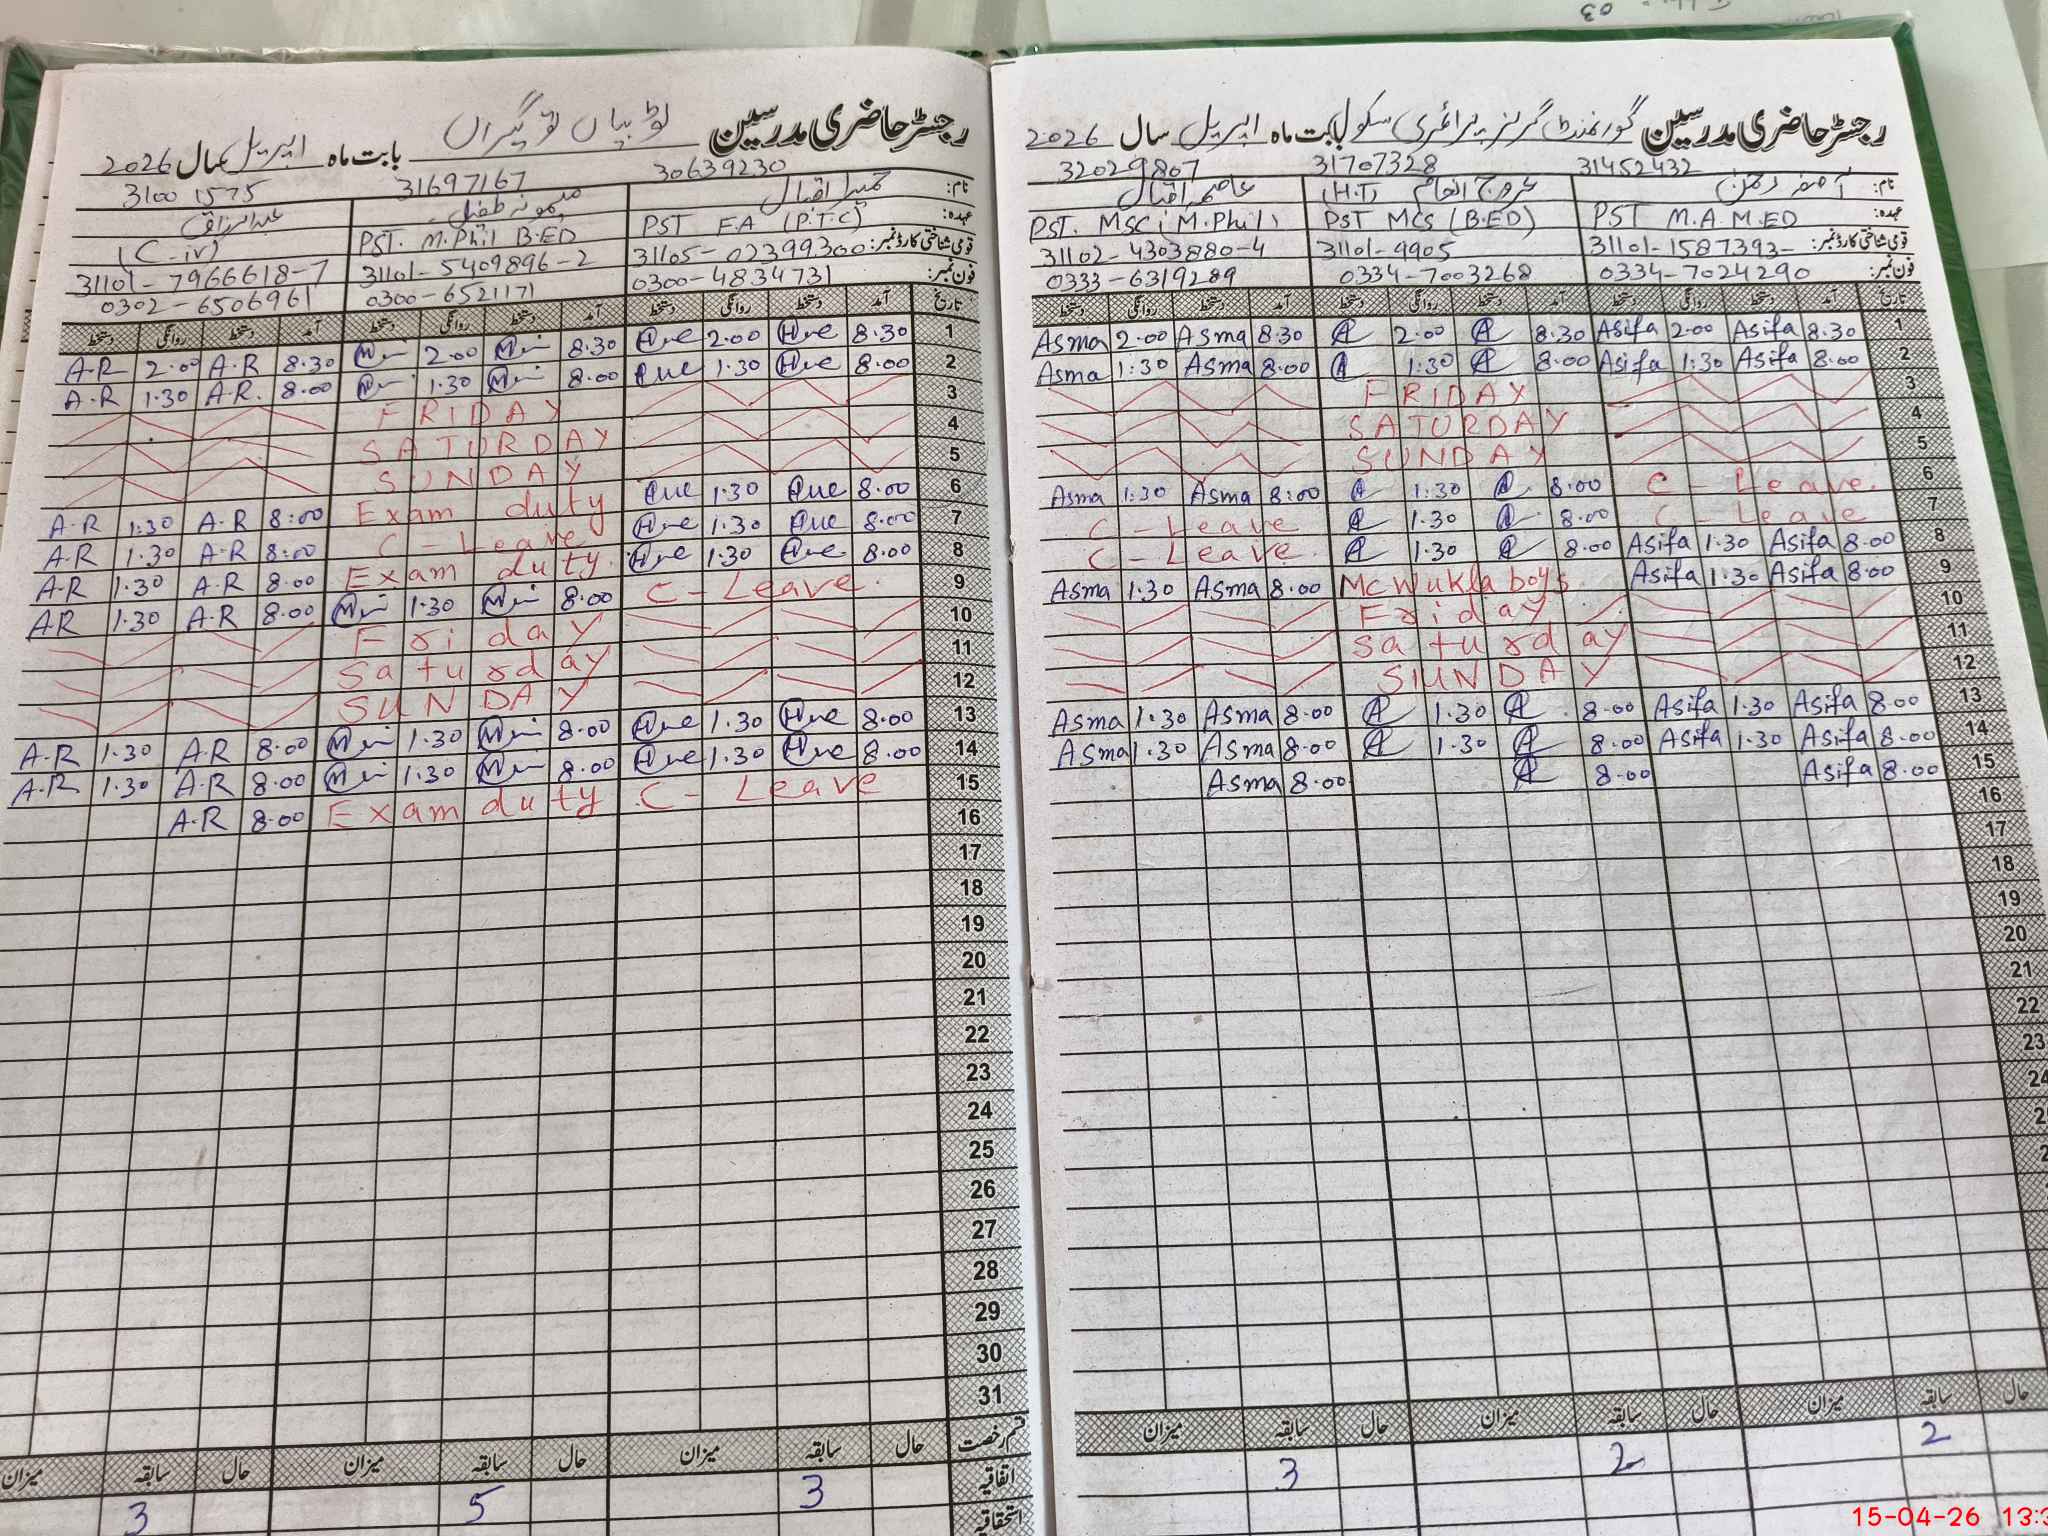 رجسٹر حاضری مدرسین گورنمنٹ گرلز پرائمری سکول بابت ماہ اپریل سال 2026
31452432 31707328 32029807
نام: آصفہ رحمن عروج انعام (H.T) عاصمہ اقبال
عہدہ: PST M.A. M.ED PST MCS (B.ED) PST. MSC (M.Phil)
قومی شناختی کارڈ نمبر: 31101-1587393- 31101-9905 31102-4303880-4
فون نمبر: 0334-7024290 0334-7003268 0333-6319289
تاریخ آمد دستخط روانگی دستخط آمد دستخط روانگی دستخط آمد دستخط روانگی دستخط
1 8.30 Asifa 2.00 Asifa 8.30 A 2.00 A 8.30 Asma 2.00 Asma
2 8.00 Asifa 1:30 Asifa 8.00 A 1:30 A 8.00 Asma 1:30 Asma
3 FRIDAY
4 SATURDAY
5 SUNDAY
6 C-Leave. 8.00 A 1:30 A 8:00 Asma 1:30 Asma
7 C-Leave 8.00 A 1.30 A C-Leave
8 8.00 Asifa 1.30 Asifa 8.00 A 1.30 A C-Leave.
9 8.00 Asifa 1.30 Asifa Mc Wukla boys 8.00 Asma 1:30 Asma
10 Friday
11 Saturday
12 SUNDAY
13 8.00 Asifa 1.30 Asifa 8.00 A 1.30 A 8.00 Asma 1:30 Asma
14 8.00 Asifa 1.30 Asifa 8.00 A 1.30 A 8.00 Asma 1:30 Asma
15 8.00 Asifa 8.00 A 8.00 Asma
16
17
18
19
20
21
22
23
24
حال سابقہ میزان حال سابقہ میزان حال سابقہ میزان
2 2 3
رجسٹر حاضری مدرسین بابت ماہ اپریل سال 2026
30639230 31697167 31001575
نام: حمیرا اقبال میمونہ طفیل عبدالرزاق
عہدہ: PST F.A (P.T.C) PST. M.Phil B.ED (C-iv)
قومی شناختی کارڈ نمبر: 31105-0239930 31101-5409896-2 31101-7966618-7
فون نمبر: 0300-4834731 0300-6521171 0302-6506961
تاریخ آمد دستخط روانگی دستخط آمد دستخط روانگی دستخط آمد دستخط روانگی دستخط
1 8.30 2.00 8.30 2.00 8.30 A.R 2.00 A.R
2 8.00 1.30 8.00 1.30 8.00 A.R. 1.30 A.R
3 FRIDAY
4 SATURDAY
5 SUNDAY
6 8.00 1:30 Exam duty 8:00 A.R 1:30 A.R
7 8.00 1.30 C-Leave 8:00 A.R 1.30 A.R
8 8.00 1:30 Exam duty. 8.00 A.R 1.30 A.R
9 C-Leave. 8.00 1.30 8.00 A.R 1.30 AR
10 Friday
11 Saturday
12 SUNDAY
13 8.00 1.30 8.00 1.30 8.00 A.R 1.30 A.R
14 8.00 1.30 8.00 1.30 8.00 A.R 1.30 A.R
15 C-Leave Exam duty 8.00 A.R
16
17
18
19
20
21
22
23
24
25
26
27
28
29
30
31
قسم رخصت حال سابقہ میزان حال سابقہ میزان حال سابقہ میزان
اتفاقیہ 3 5 3
استحقاقیہ
15-04-26 13:3